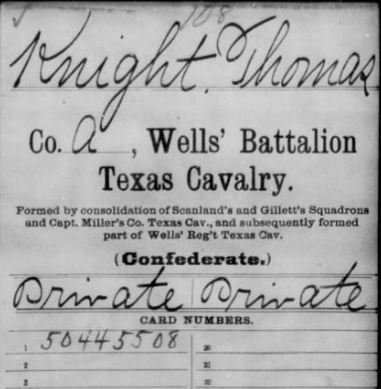 108
Knight, Thomas
Co. A, Wells' Battalion
Texas Cavalry.
Formed by consolidation of Scanland's and Gillett's Squadrons
and Capt. Miller's Co. Texas Cav., and subsequently formed
part of Wells' Reg't Texas Cav.
(Confederate.)
Private Private
CARD NUMBERS.
1 50445508 20
2 21
3 22